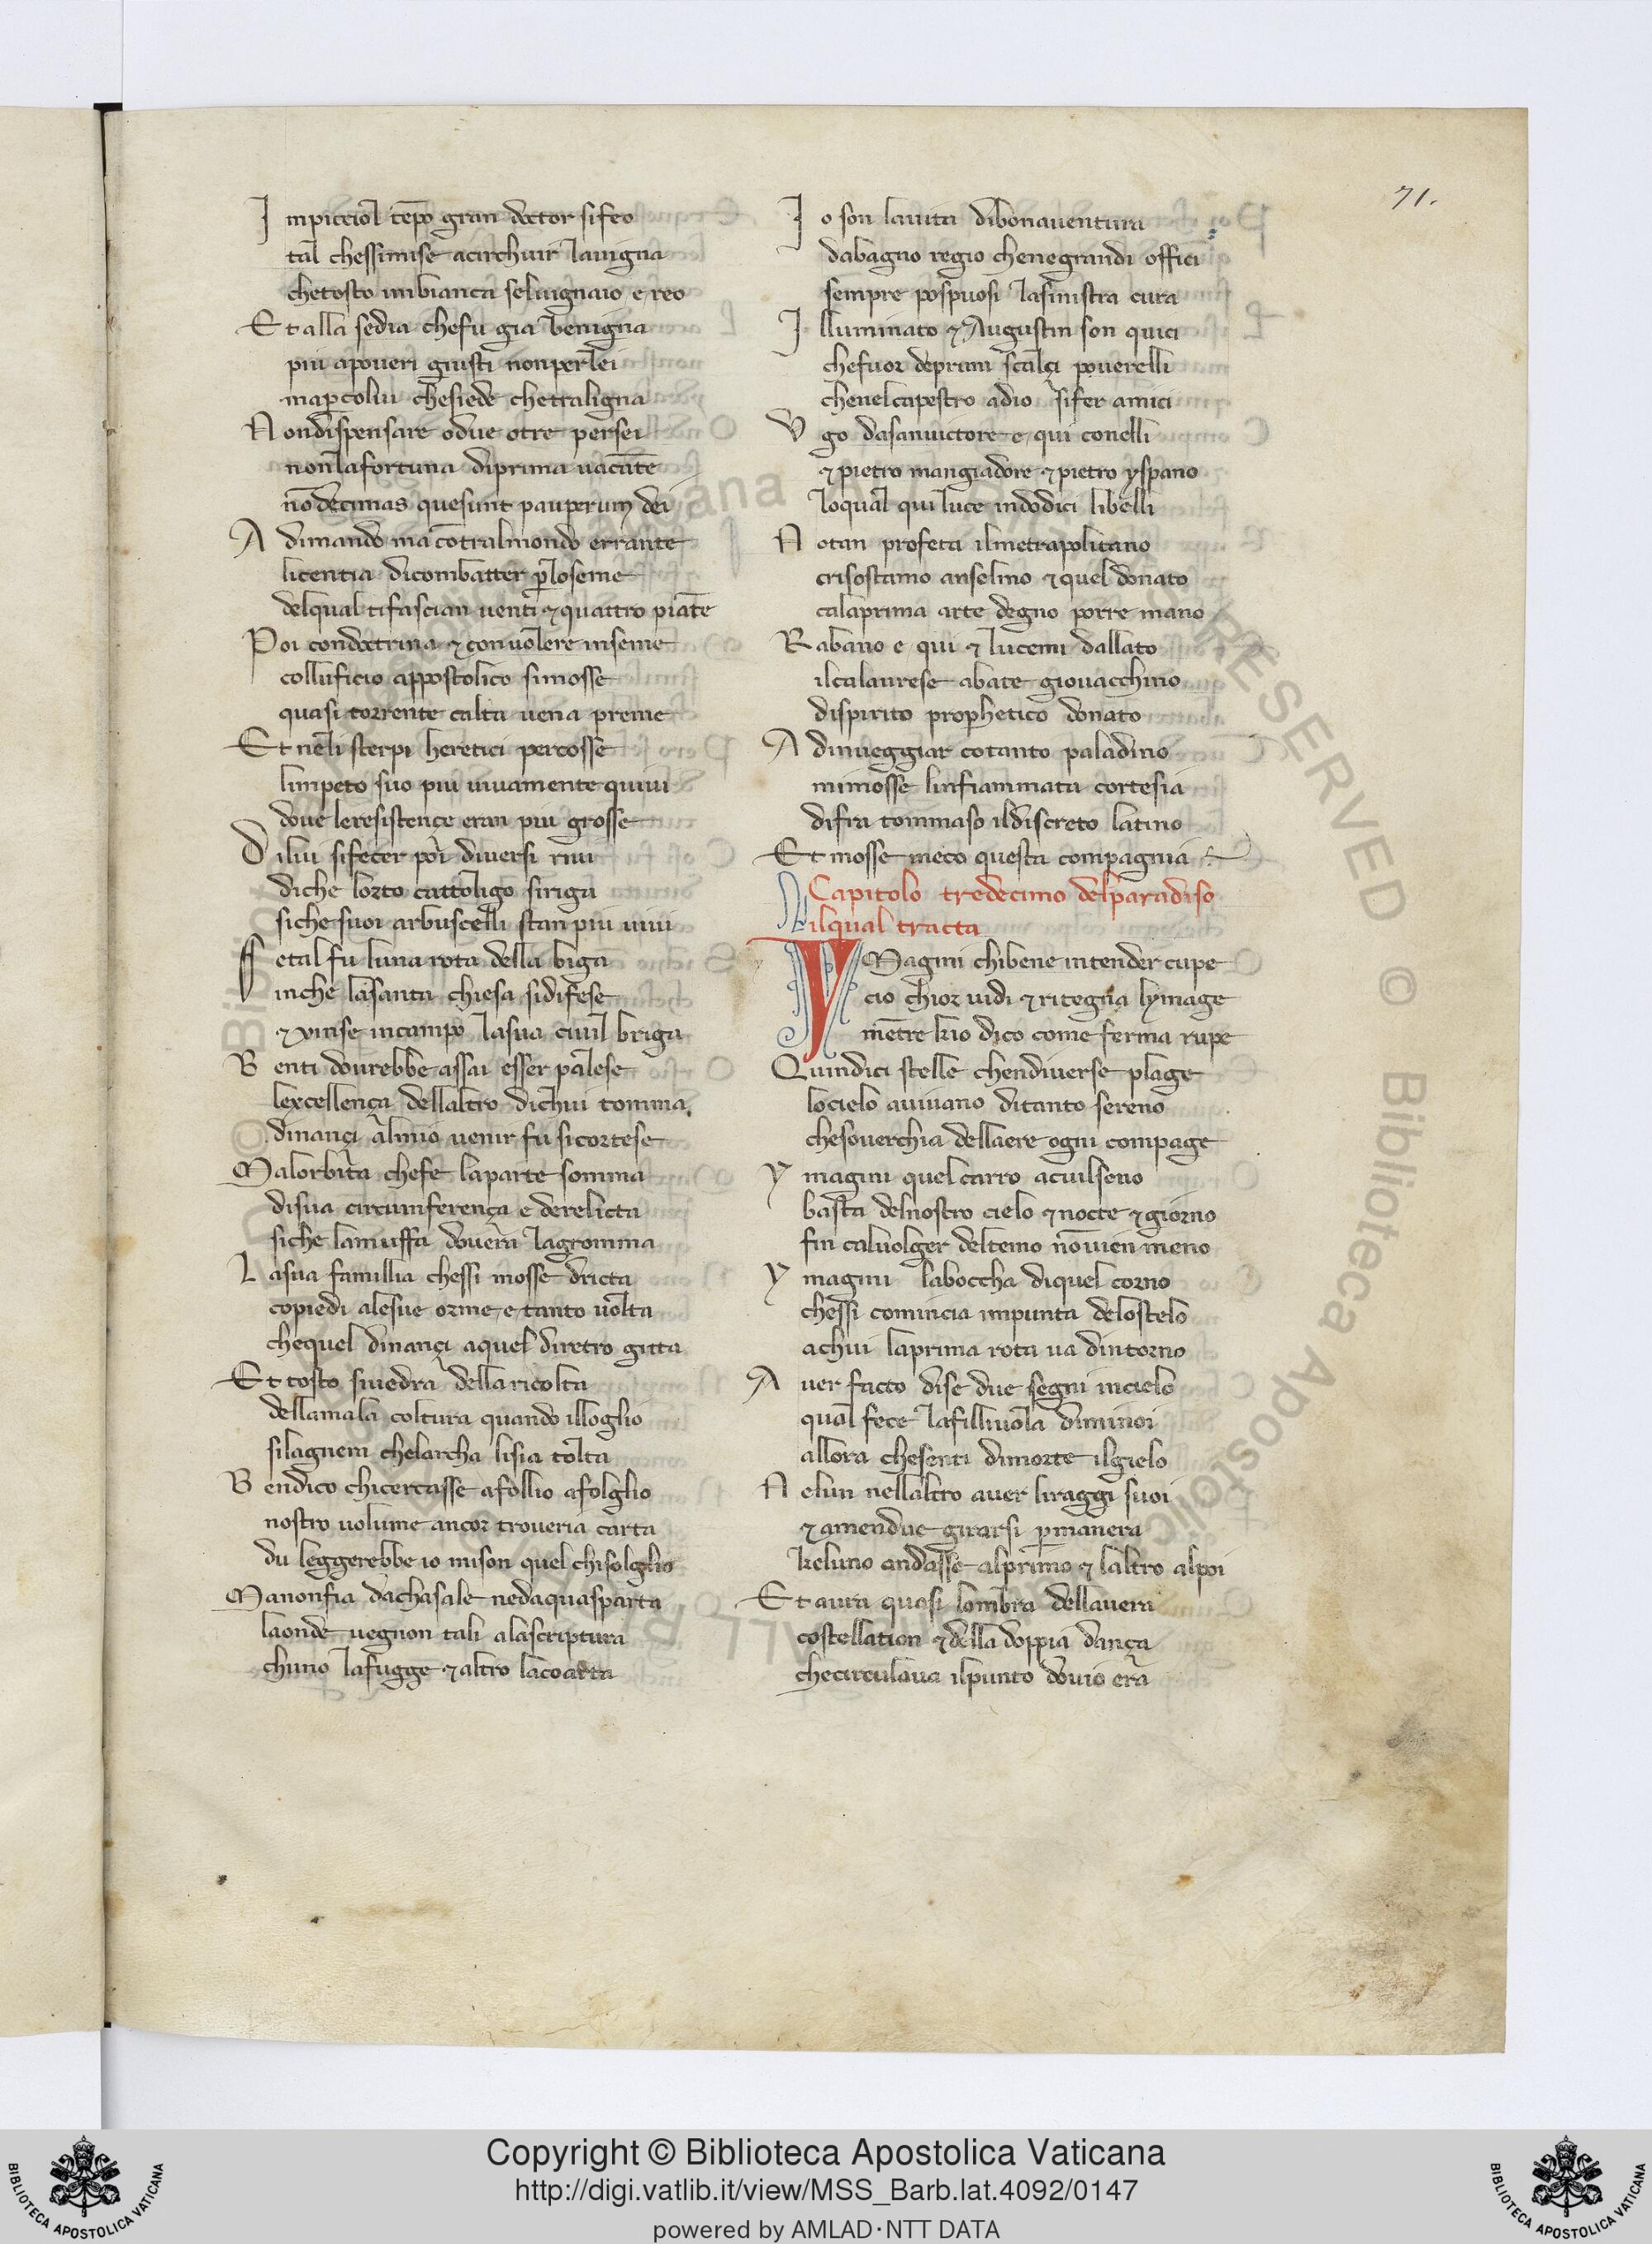 71.
Impicciol tēpo gran doctor sifeo
tal chessimise acirchuir lauigna
chetosto imbianca seluignaio e reo
Et alla sedia chefu gia benigna
piu apoueri giusti nonperlei
mapcolui chesiede chetraligna
Nondispensare odue otre persei
nonlafortuna diprima uacāte
nō decimas quesunt pauperum dei
Adimando ma cōtralmondo errante
licentia dicombatter ploseme
delqual tifascian uenti & quattro piāte
Poi condoctrina & conuolere inseme
colluficio appostolico simosse
quasi torrente calta uena preme
Et neli sterpi heretici percosse
limpeto suo piu uiuamente quiui
doue leresistençe eran piu grosse
Dilui sifecer poi diuersi riui
diche lorto cattoligo siriga
siche suoi arbuscelli stan piu uiui
Setal fu luna rota della biga
inche lasanta chiesa sidifese
& uinse incampo lasua ciuil briga
Benti dourebbe assai esser palese
lexcellença dellaltro dichui tomma
dinançi almio uenir fu sicortese
Malorbita chefe laparte somma
disua circumferença e derelicta
siche lamuffa douera lagromma
Lasua famillia chessi mosse dricta
copiedi alesue orme e tanto uolta
chequel dinançi aquel diretro gitta
Et tosto siuedra della ricolta
dellamala coltura quando illoglio
silagnem chelarcha lisia tolta
Bendico chicercasse afollio afolglio
nostro uolume ancor troueria carta
du leggerebbe io mison quel chisolglio
Manonfia dachasale nedaquasparta
laonde uegnon tali alascriptura
chuno lafugge & altro lacoarta
Io son lauita dibonauentura
dabagno regio chenegrandi offici
sempre pospuosi lasinistra cura
Illuminato & Augustin son quici
chefuor deprimi scalçi pouerelli
chenelcapestro adio sifer amici
Ugo dasanuictore e qui conelli
& pietro mangiadore & pietro yspano
loqual qui luce indodici libelli
Natan profeta ilmetrapolitano
crisostamo anselmo & quel donato
calaprima arte degno porre mano
Rabano e qui & lucemi dallato
ilcalaurese abate giouacchino
dispirito prophetico donato
Adinueggiar cotanto paladino
mimosse linfiammata cortesia
difra tommaso ildiscreto latino
Et mosse meco questa compagnia
Capitolo tredecimo delparadiso
ilqual tracta
YMagini chibene intender cupe
cio chior uidi & ritegna lymage
mētre kio dico come ferma rupe
Quindici stelle chendiuerse plage
locielo auiuano ditanto sereno
chesouerchia dellaere ogni compage
Ymagini quel carro acuilseno
basta delnostro cielo & nocte & giorno
sin caluolger deltemo nōuien meno
Ymagini laboccha diquel corno
chessi comincia inpunta delostelo
achui laprima rota ua dintorno
Auer facto dise due segni incielo
qual fece lafilliuola diminoi
allora chesenti dimorte ilgielo
Nelun nellaltro auer liraggi suoi
& amendue girarsi pmanera
keluno andasse alprimo & laltro alpoi
Et aura quasi lombra dellauera
costellation & della doppia dança
checirculaua ilpunto douio era
Copyright © Biblioteca Apostolica Vaticana
http://digi.vatlib.it/view/MSS_Barb.lat.4092/0147
powered by AMLAD·NTT DATA
BIBLIOTECA APOSTOLICA VATICANA
BIBLIOTECA APOSTOLICA VATICANA